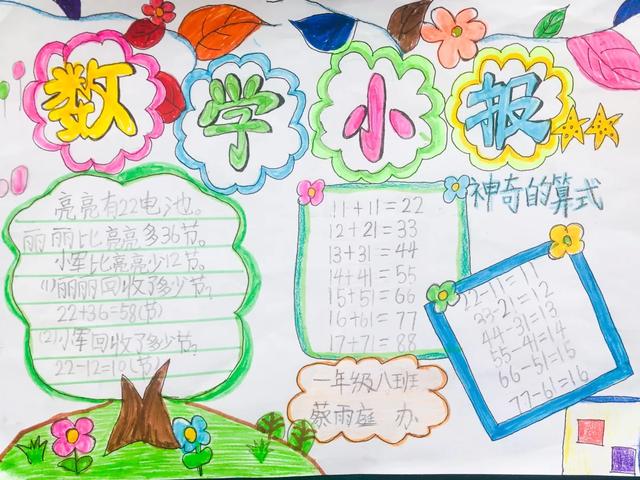 数学小报
亮亮有22电池。
丽丽比亮亮多36节。
小军比亮亮少12节。
(1)丽丽回收了多少节?
22+36=58(节)
(2)小军回收了多少节?
22-12=10(节)
11+11=22
12+21=33
13+31=44
14+41=55
15+51=66
16+61=77
17+71=88
神奇的算式
22-11=11
33-21=12
44-31=13
55-41=14
66-51=15
77-61=16
一年级八班
蔡雨庭 办